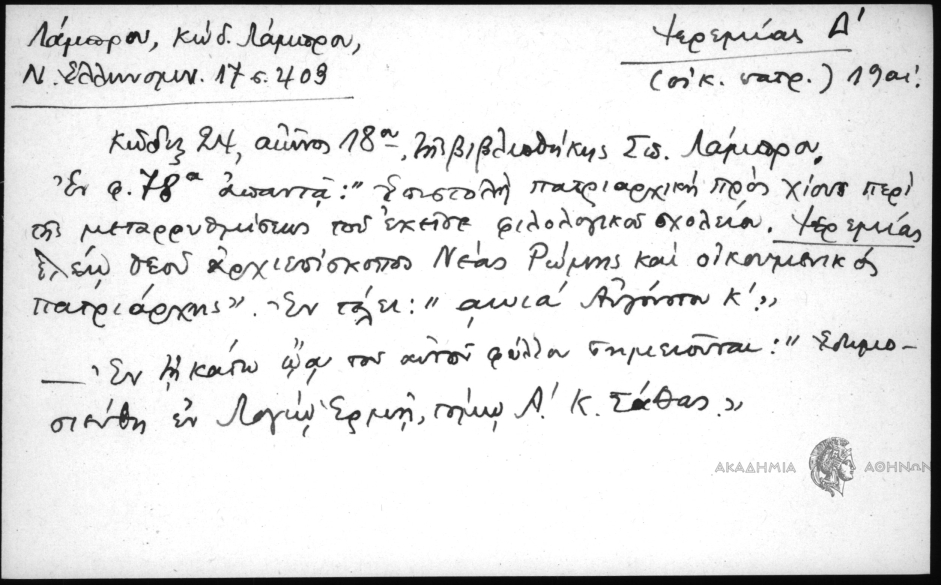 Λάμπρου, Κώδ. Λάμπρου,
Ν. Ἑλληνομν. 17 σ. 409
Ἱερεμίας Δ'
(οἰκ. πατρ.) 19 αἰ.
Κῶδιξ 24, αἰῶνος 18ου, τῆς βιβλιοθήκης Σπ. Λάμπρου.
Ἐν φ. 78α ἀπαντᾷ: "Ἐπιστολὴ πατριαρχικὴ πρὸς Χίους περὶ
τῆς μεταρρυθμίσεως τοῦ ἐκεῖσε φιλολογικοῦ σχολείου. Ἱερεμίας
ἐλέῳ Θεοῦ ἀρχιεπίσκοπος Νέας Ρώμης καὶ οἰκουμενικὸς
πατριάρχης». Ἐν τέλει: " αωια' Αὐγούστου κ'.»
— Ἐν τῇ κάτω ᾤᾳ τοῦ αὐτοῦ φύλλου σημειοῦται: " Ἐδημο-
σιεύθη ἐν Λογίῳ Ἑρμῇ, τόμῳ Α'. Κ. Σάθας.»
ΑΚΑΔΗΜΙΑ ΑΘΗΝΩΝ